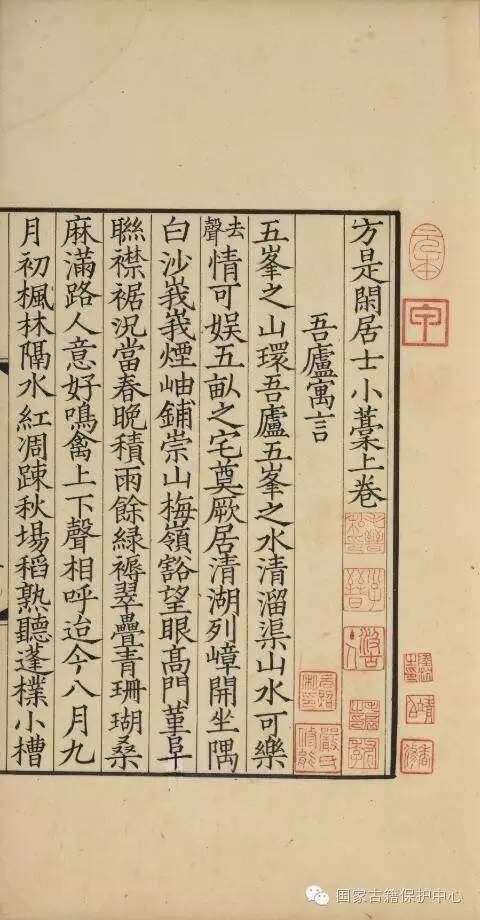 方是閑居士小藁上卷
吾廬寓言
五峯之山環吾廬五峯之水清溜渠山水可樂
去聲情可娱五畝之宅奠厥居清湖列嶂開坐隅
白沙峩峩煙岫鋪崇山梅嶺豁望眼髙門董阜
聯襟裾況當春晚積雨餘緑褥翠疊青珊瑚桑
麻滿路人意好鳴禽上下聲相呼迨今八月九
月初楓林隔水紅凋踈秋場稻熟聽蓬樸小槽
元本
国家古籍保护中心